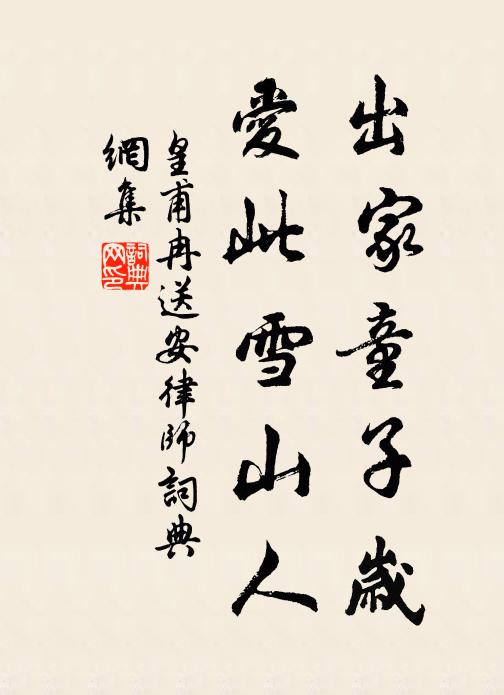 出家童子歲
愛此雪山人
皇甫冉送安律師詞典
網集
詞典
网印